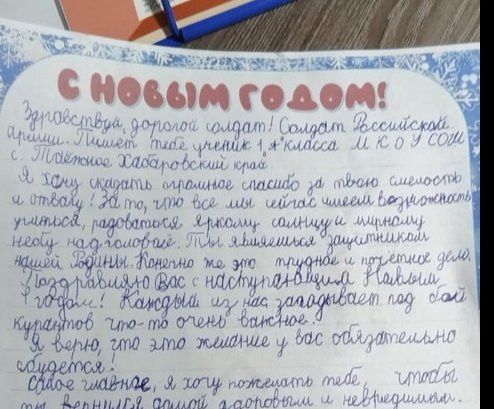 С НОВЫМ ГОДОМ!
Здравствуй, дорогой солдат! Солдат Российской
армии. Пишет тебе ученик 1 "А" класса М К О У СОШ
с. Таёжное Хабаровский край.
Я хочу сказать огромное спасибо за твою смелость
и отвагу! За то, что все мы сейчас имеем возможность
учиться, радоваться яркому солнцу и мирному
небу над головой. Ты являешься защитником
нашей Родины. Конечно же это трудное и почётное дело.
Поздравляю Вас с наступающим Новым
годом! Каждый из нас загадывает под бой
курантов что-то очень важное.
Я верю, что это желание у вас обязательно
сбудется!
Самое главное, я хочу пожелать тебе, чтобы
ты вернулся домой здоровым и невредимым.